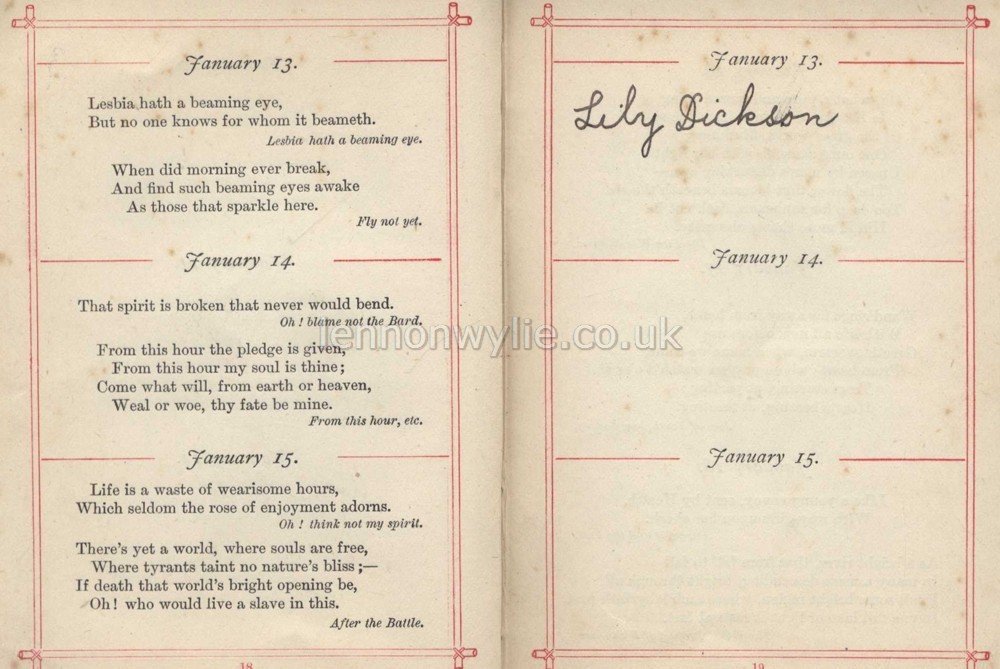 January 13.
Lesbia hath a beaming eye,
But no one knows for whom it beameth.
Lesbia hath a beaming eye.
When did morning ever break,
And find such beaming eyes awake
As those that sparkle here.
Fly not yet.
January 14.
That spirit is broken that never would bend.
Oh! blame not the Bard.
From this hour the pledge is given,
From this hour my soul is thine;
Come what will, from earth or heaven,
Weal or woe, thy fate be mine.
From this hour, etc.
January 15.
Life is a waste of wearisome hours,
Which seldom the rose of enjoyment adorns.
Oh! think not my spirit.
There's yet a world, where souls are free,
Where tyrants taint no nature's bliss;—
If death that world's bright opening be,
Oh! who would live a slave in this.
After the Battle.
18
January 13.
Lily Dickson
January 14.
January 15.
19
lennonwylie.co.uk